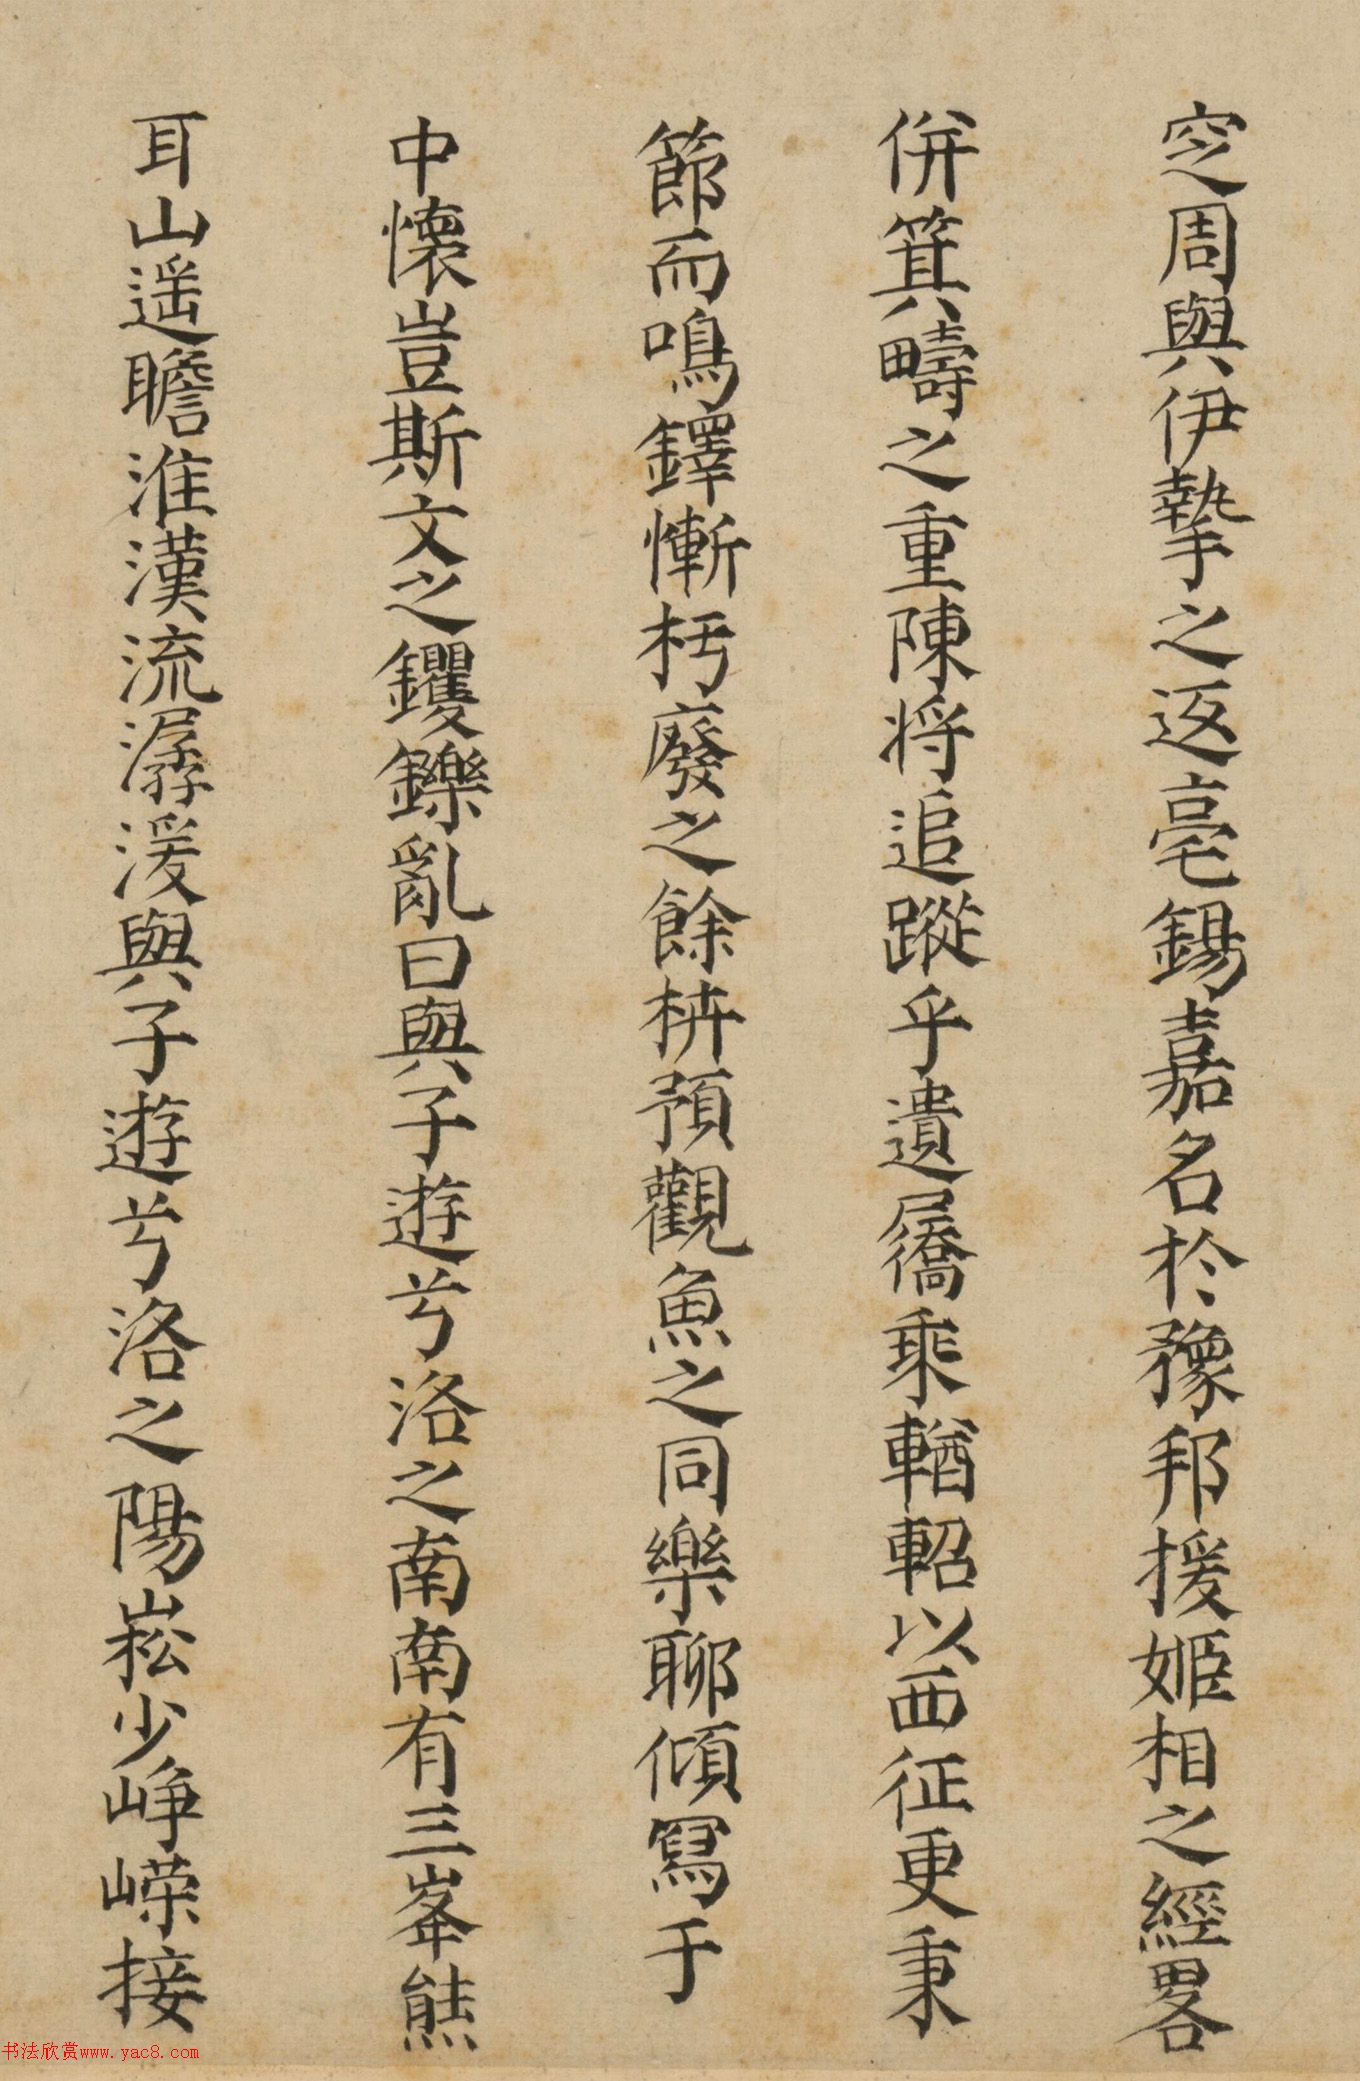 空周與伊摯之返亳錫嘉名於豫邦援姬相之經畧
併箕疇之重陳将追蹤乎遺屩乘輶軺以西征更秉
節而鳴鐸慚朽廢之餘枿預觀魚之同樂聊傾寫于
中懷豈斯文之钁鑠亂曰與子遊兮洛之南南有三峯熊
耳山遥瞻淮漢流潺湲與子遊兮洛之陽崧少崢嶸接
书法欣赏www.yac8.com